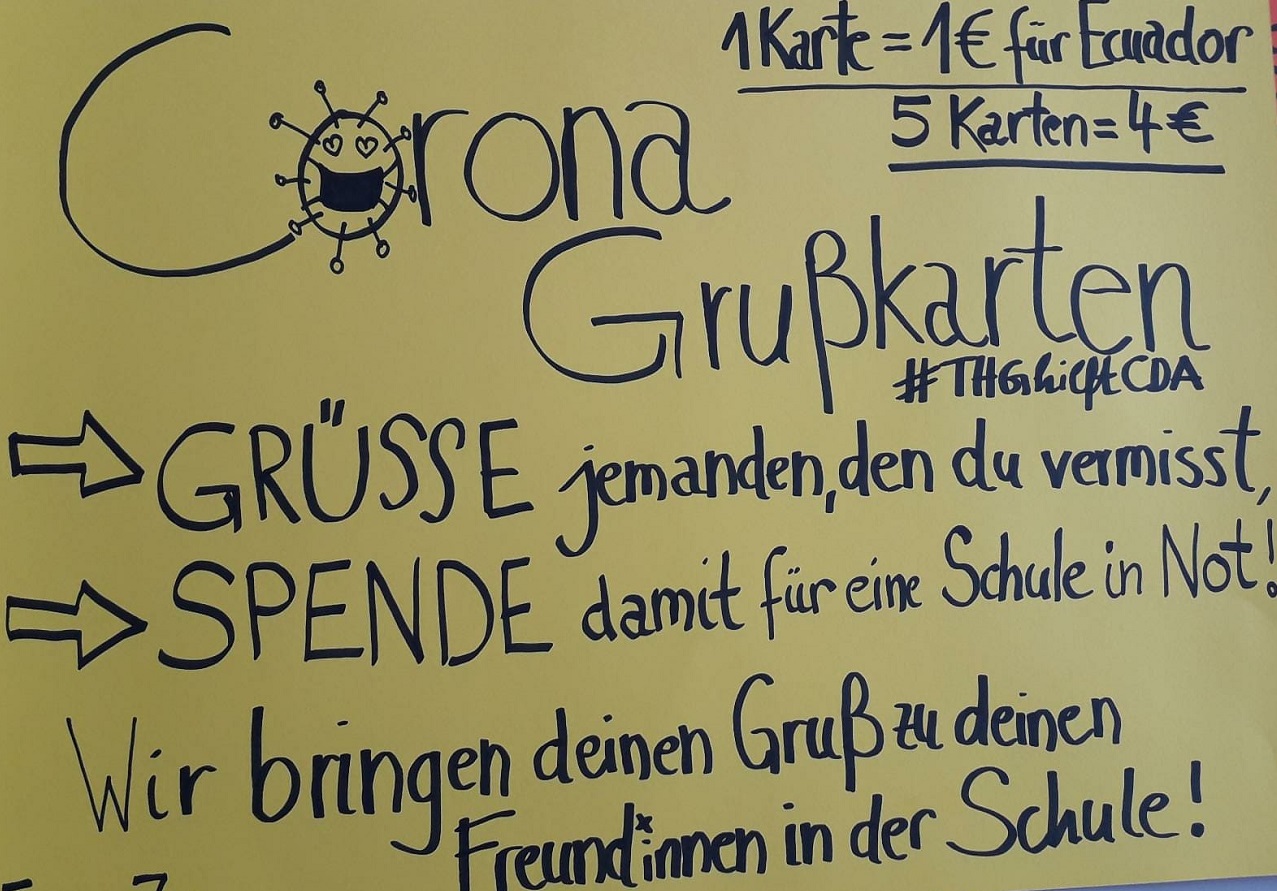 Corona
1 Karte = 1€ für Ecuador
5 Karten = 4€
Grußkarten
#THGhilftCDA
GRÜSSE jemanden, den du vermisst,
SPENDE damit für eine Schule in Not!
Wir bringen deinen Gruß zu deinen
Freund*innen in der Schule!